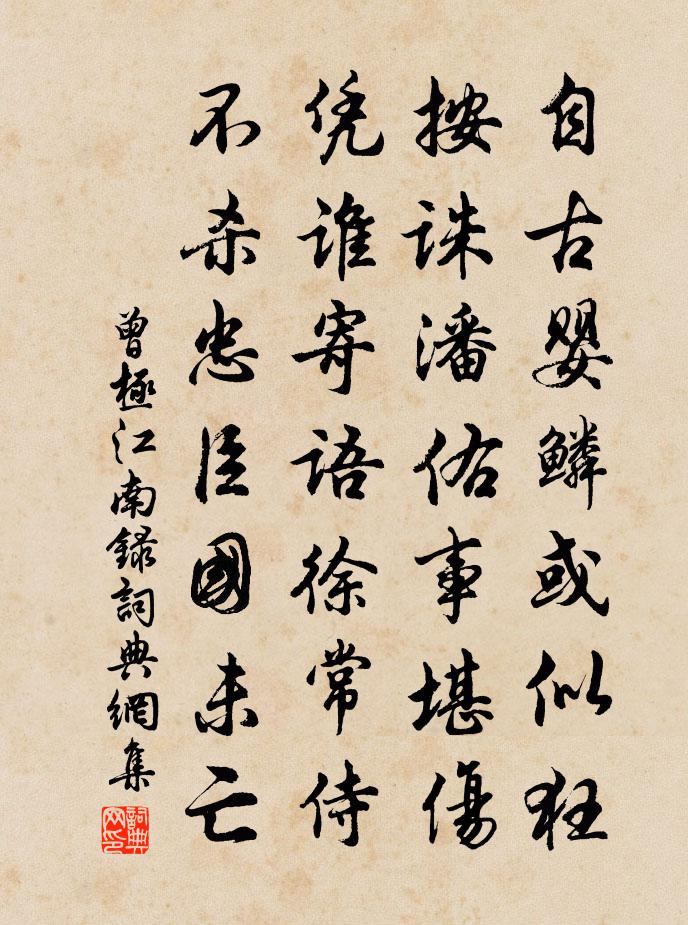 自古嬰鱗或似狂
按誅潘佑事堪傷
凭誰寄語徐常侍
不杀忠臣國未亡
曾極江南録詞典網集
詞典網印